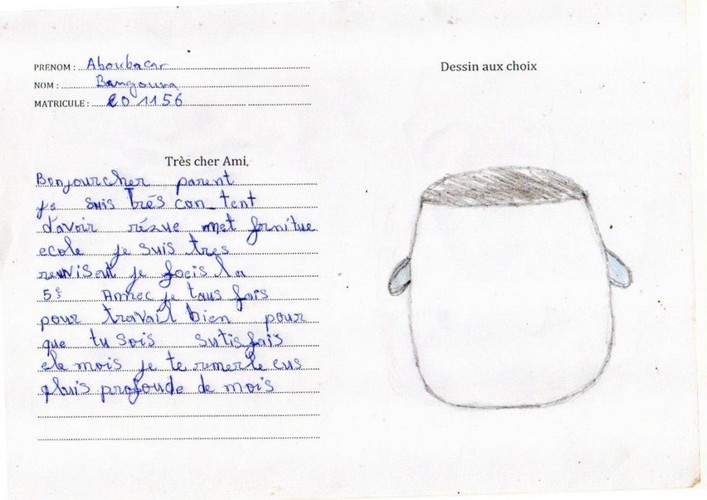 PRENOM : Aboubacar
NOM : Bangoura
MATRICULE : 201156
Dessin aux choix
Très cher Ami,
Bonjour cher parent
je suis très con_tent
d'avoir rézue met fornitue
ecole je suis tres
je focis la
5e Annec je tous fais
pour travail bien pour
que tu sois sutisfais
ele mois je te remercle cus
pluis profoude de mois